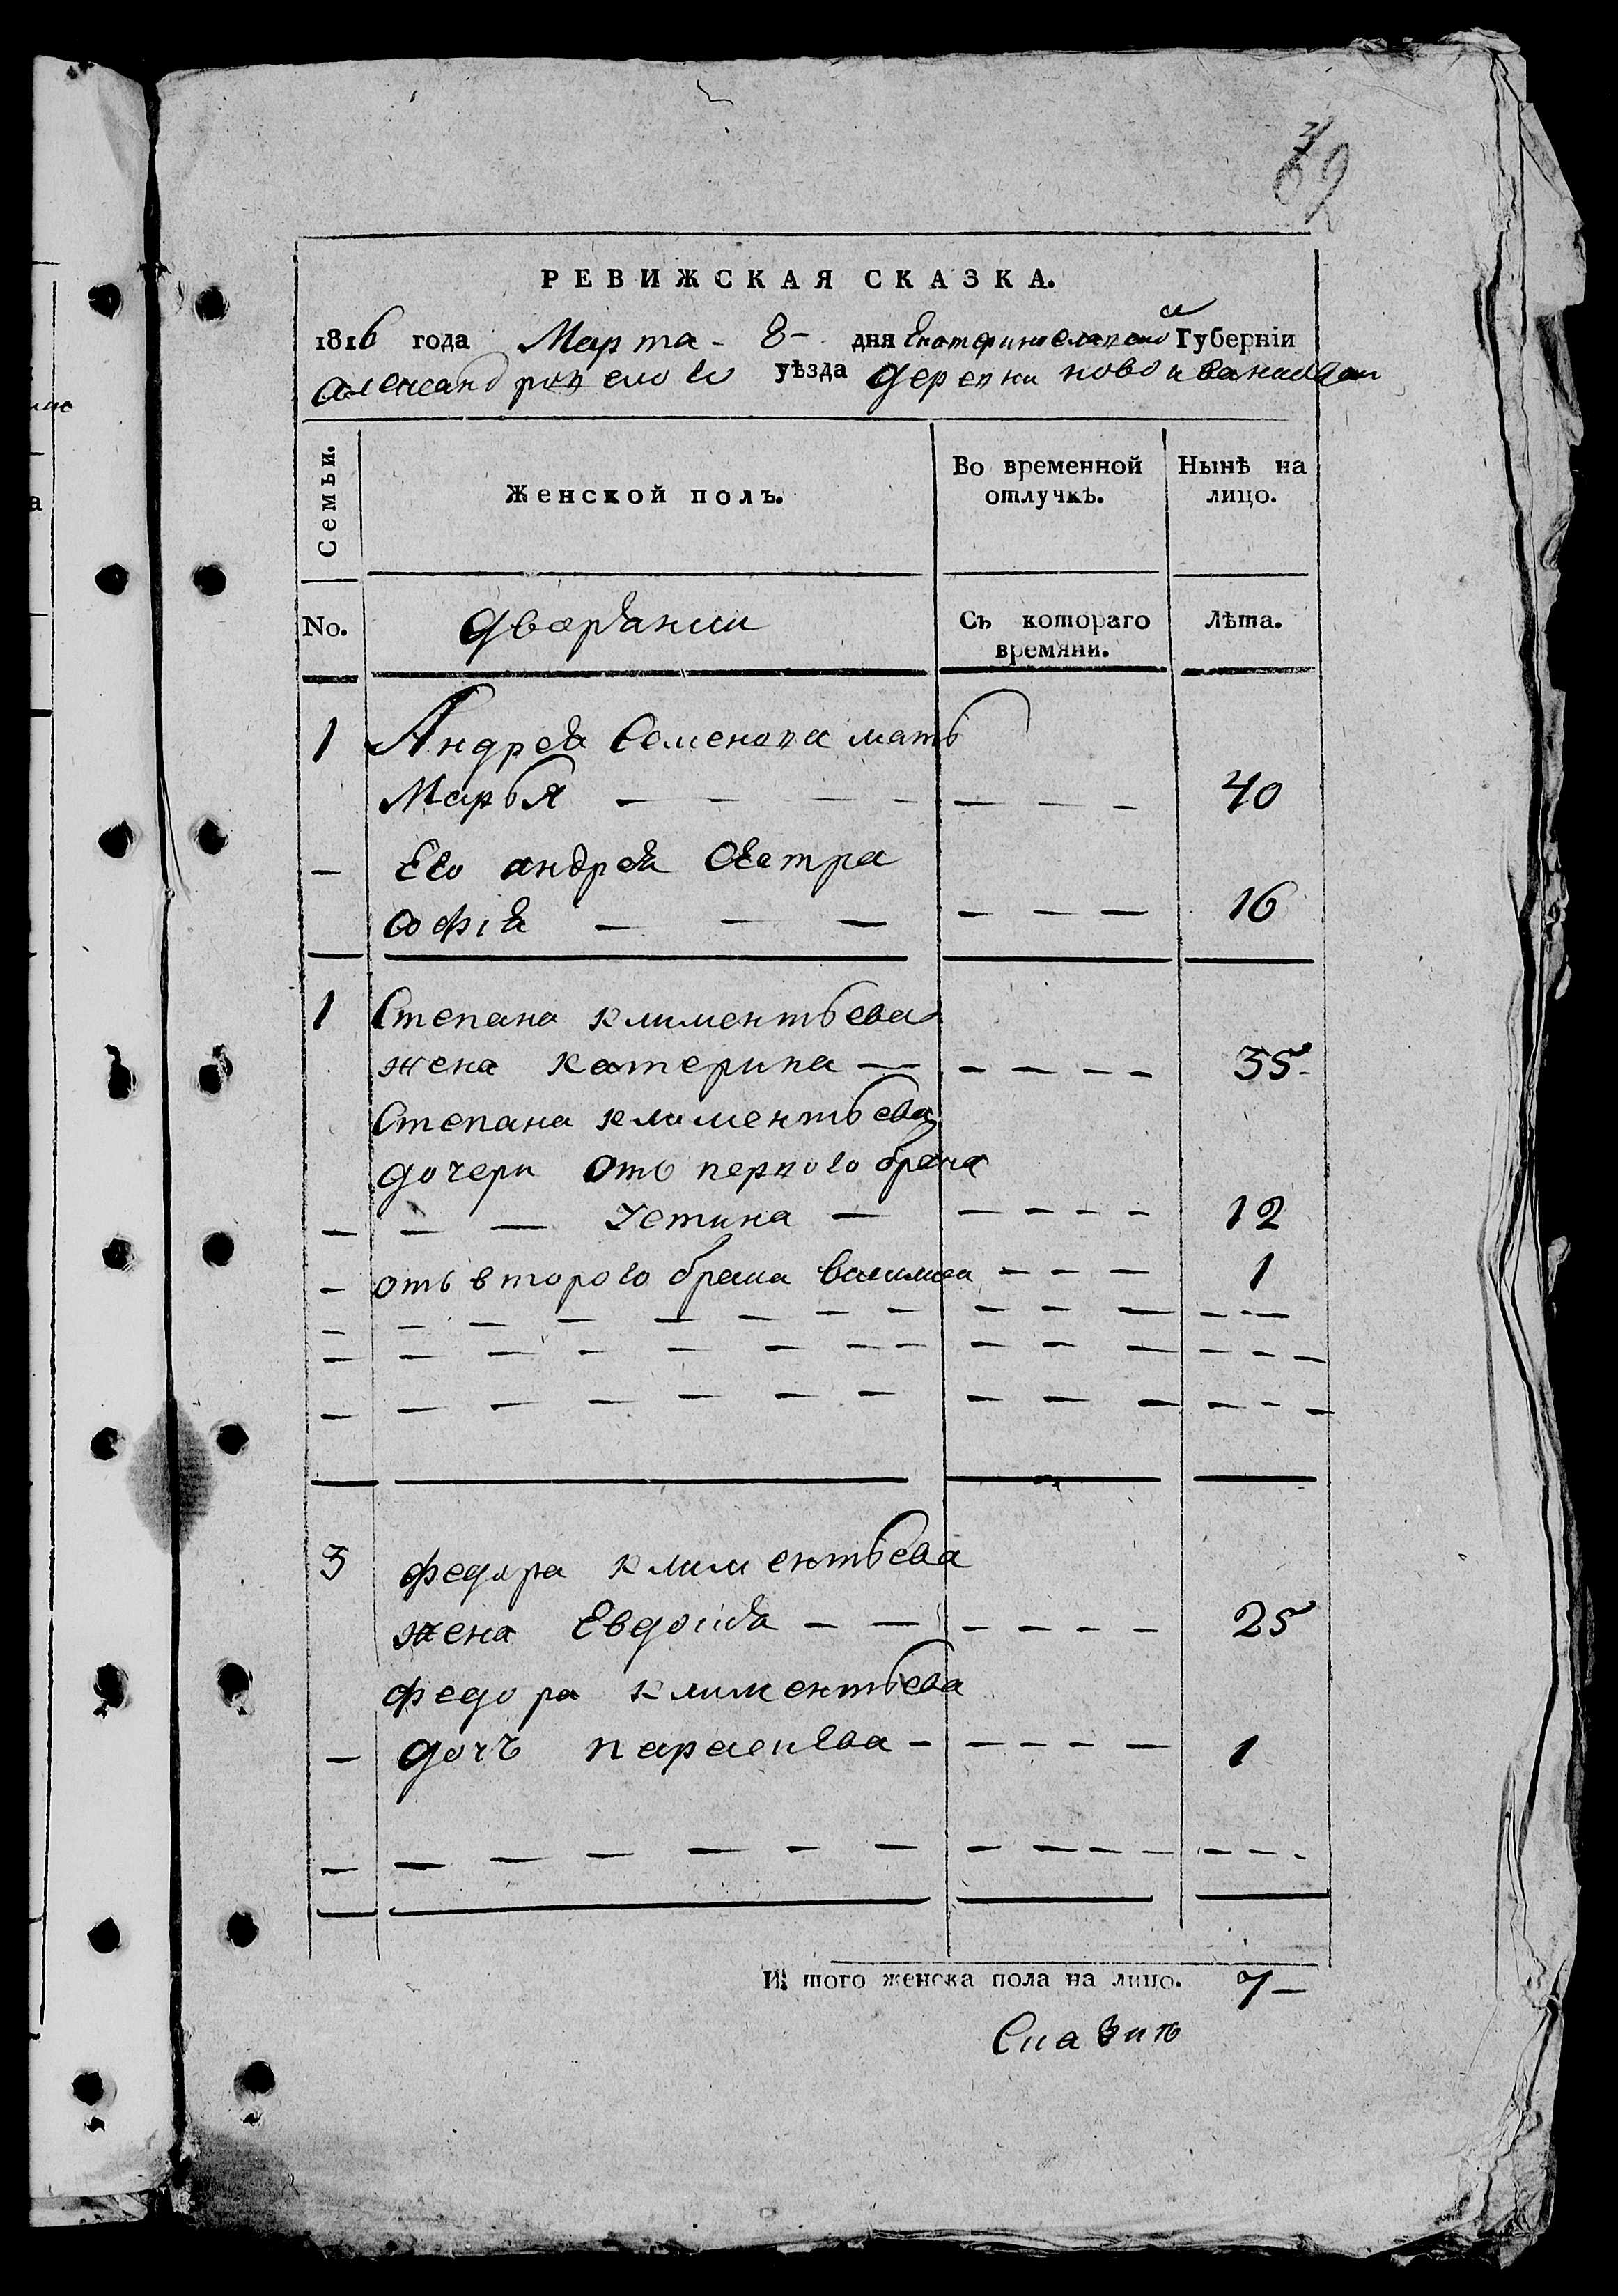 69
РЕВИЖСКАЯ СКАЗКА.
1816 года Марта - 8 - дня Екатеринославской Губерніи
александровского уѣзда деревни новоивановки
Семьи.
Женской полъ.
Во временной отлучкѣ.
Нынѣ на лицо.
No.
дворѣнии
Съ котораго времяни.
Лѣта.
1 Андрея Семенова мать
Марья — — — — — — — 40
— Его андрея Сестра
софія — — — — — — 16
1 Степана климентьева
жена катерина — — — — — 35
Степана климентьева
дочери отъ первого брака
— — — Устина — — — — — 12
— отъ второго брака василиса — — — 1
3 федора климентьева
жена Евдокія — — — — — — 25
федора климентьева
— дочь парасκѣва — — — — — 1
И того женска пола на лицо. 7 —